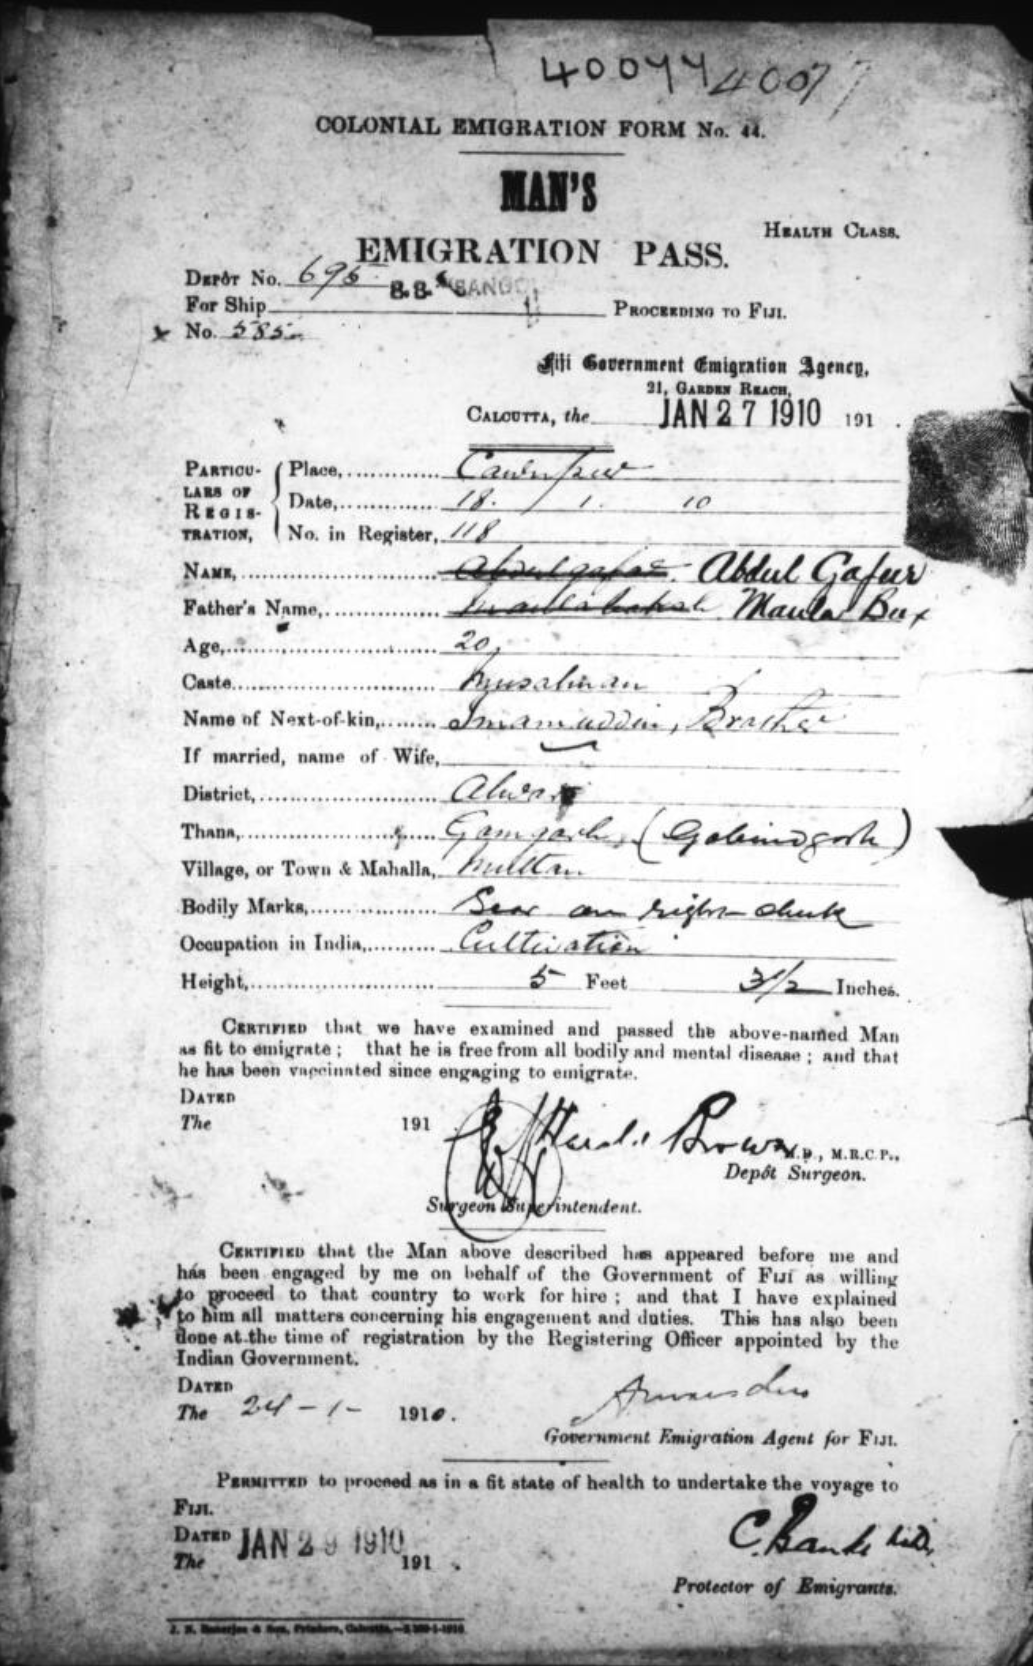 40077 4007
COLONIAL EMIGRATION FORM No. 44.
MAN'S
HEALTH CLASS.
EMIGRATION PASS.
DEPÔT No. 695
S.S. SANGOLA
For Ship PROCEEDING TO FIJI.
No. 585
Fiji Government Emigration Agency,
21, GARDEN REACH,
CALCUTTA, the JAN 27 1910 191 .
PARTICULARS OF REGISTRATION,
Place, Cawnpur
Date, 18. 1. 10
No. in Register, 118
NAME, Abdul gafar. Abdul Gafur
Father's Name, Maula baksh Maula Bux
Age, 20
Caste Musalman
Name of Next-of-kin, Imamuddin, Brother
If married, name of Wife,
District, Alwar
Thana, (Gobindgarh)
Village, or Town & Mahalla, Multan
Bodily Marks, Scar on right cheek
Occupation in India, Cultivation
Height, 5 Feet 3½ Inches.
CERTIFIED that we have examined and passed the above-named Man
as fit to emigrate ; that he is free from all bodily and mental disease ; and that
he has been vaccinated since engaging to emigrate.
DATED
The 191
Brown M.D., M.R.C.P.,
Depôt Surgeon.
Surgeon Superintendent.
CERTIFIED that the Man above described has appeared before me and
has been engaged by me on behalf of the Government of FIJI as willing
to proceed to that country to work for hire ; and that I have explained
to him all matters concerning his engagement and duties. This has also been
done at the time of registration by the Registering Officer appointed by the
Indian Government.
DATED
The 24 - 1 - 1910.
Government Emigration Agent for FIJI.
PERMITTED to proceed as in a fit state of health to undertake the voyage to
FIJI.
DATED JAN 29 1910
The 191 .
C. Banks M.D.
Protector of Emigrants.
J. N. Banerjee & Son, Printers, Calcutta.